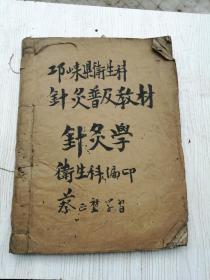 邛崍県衛生科
針灸普及教材
針灸學
衛生科編印
蔡正